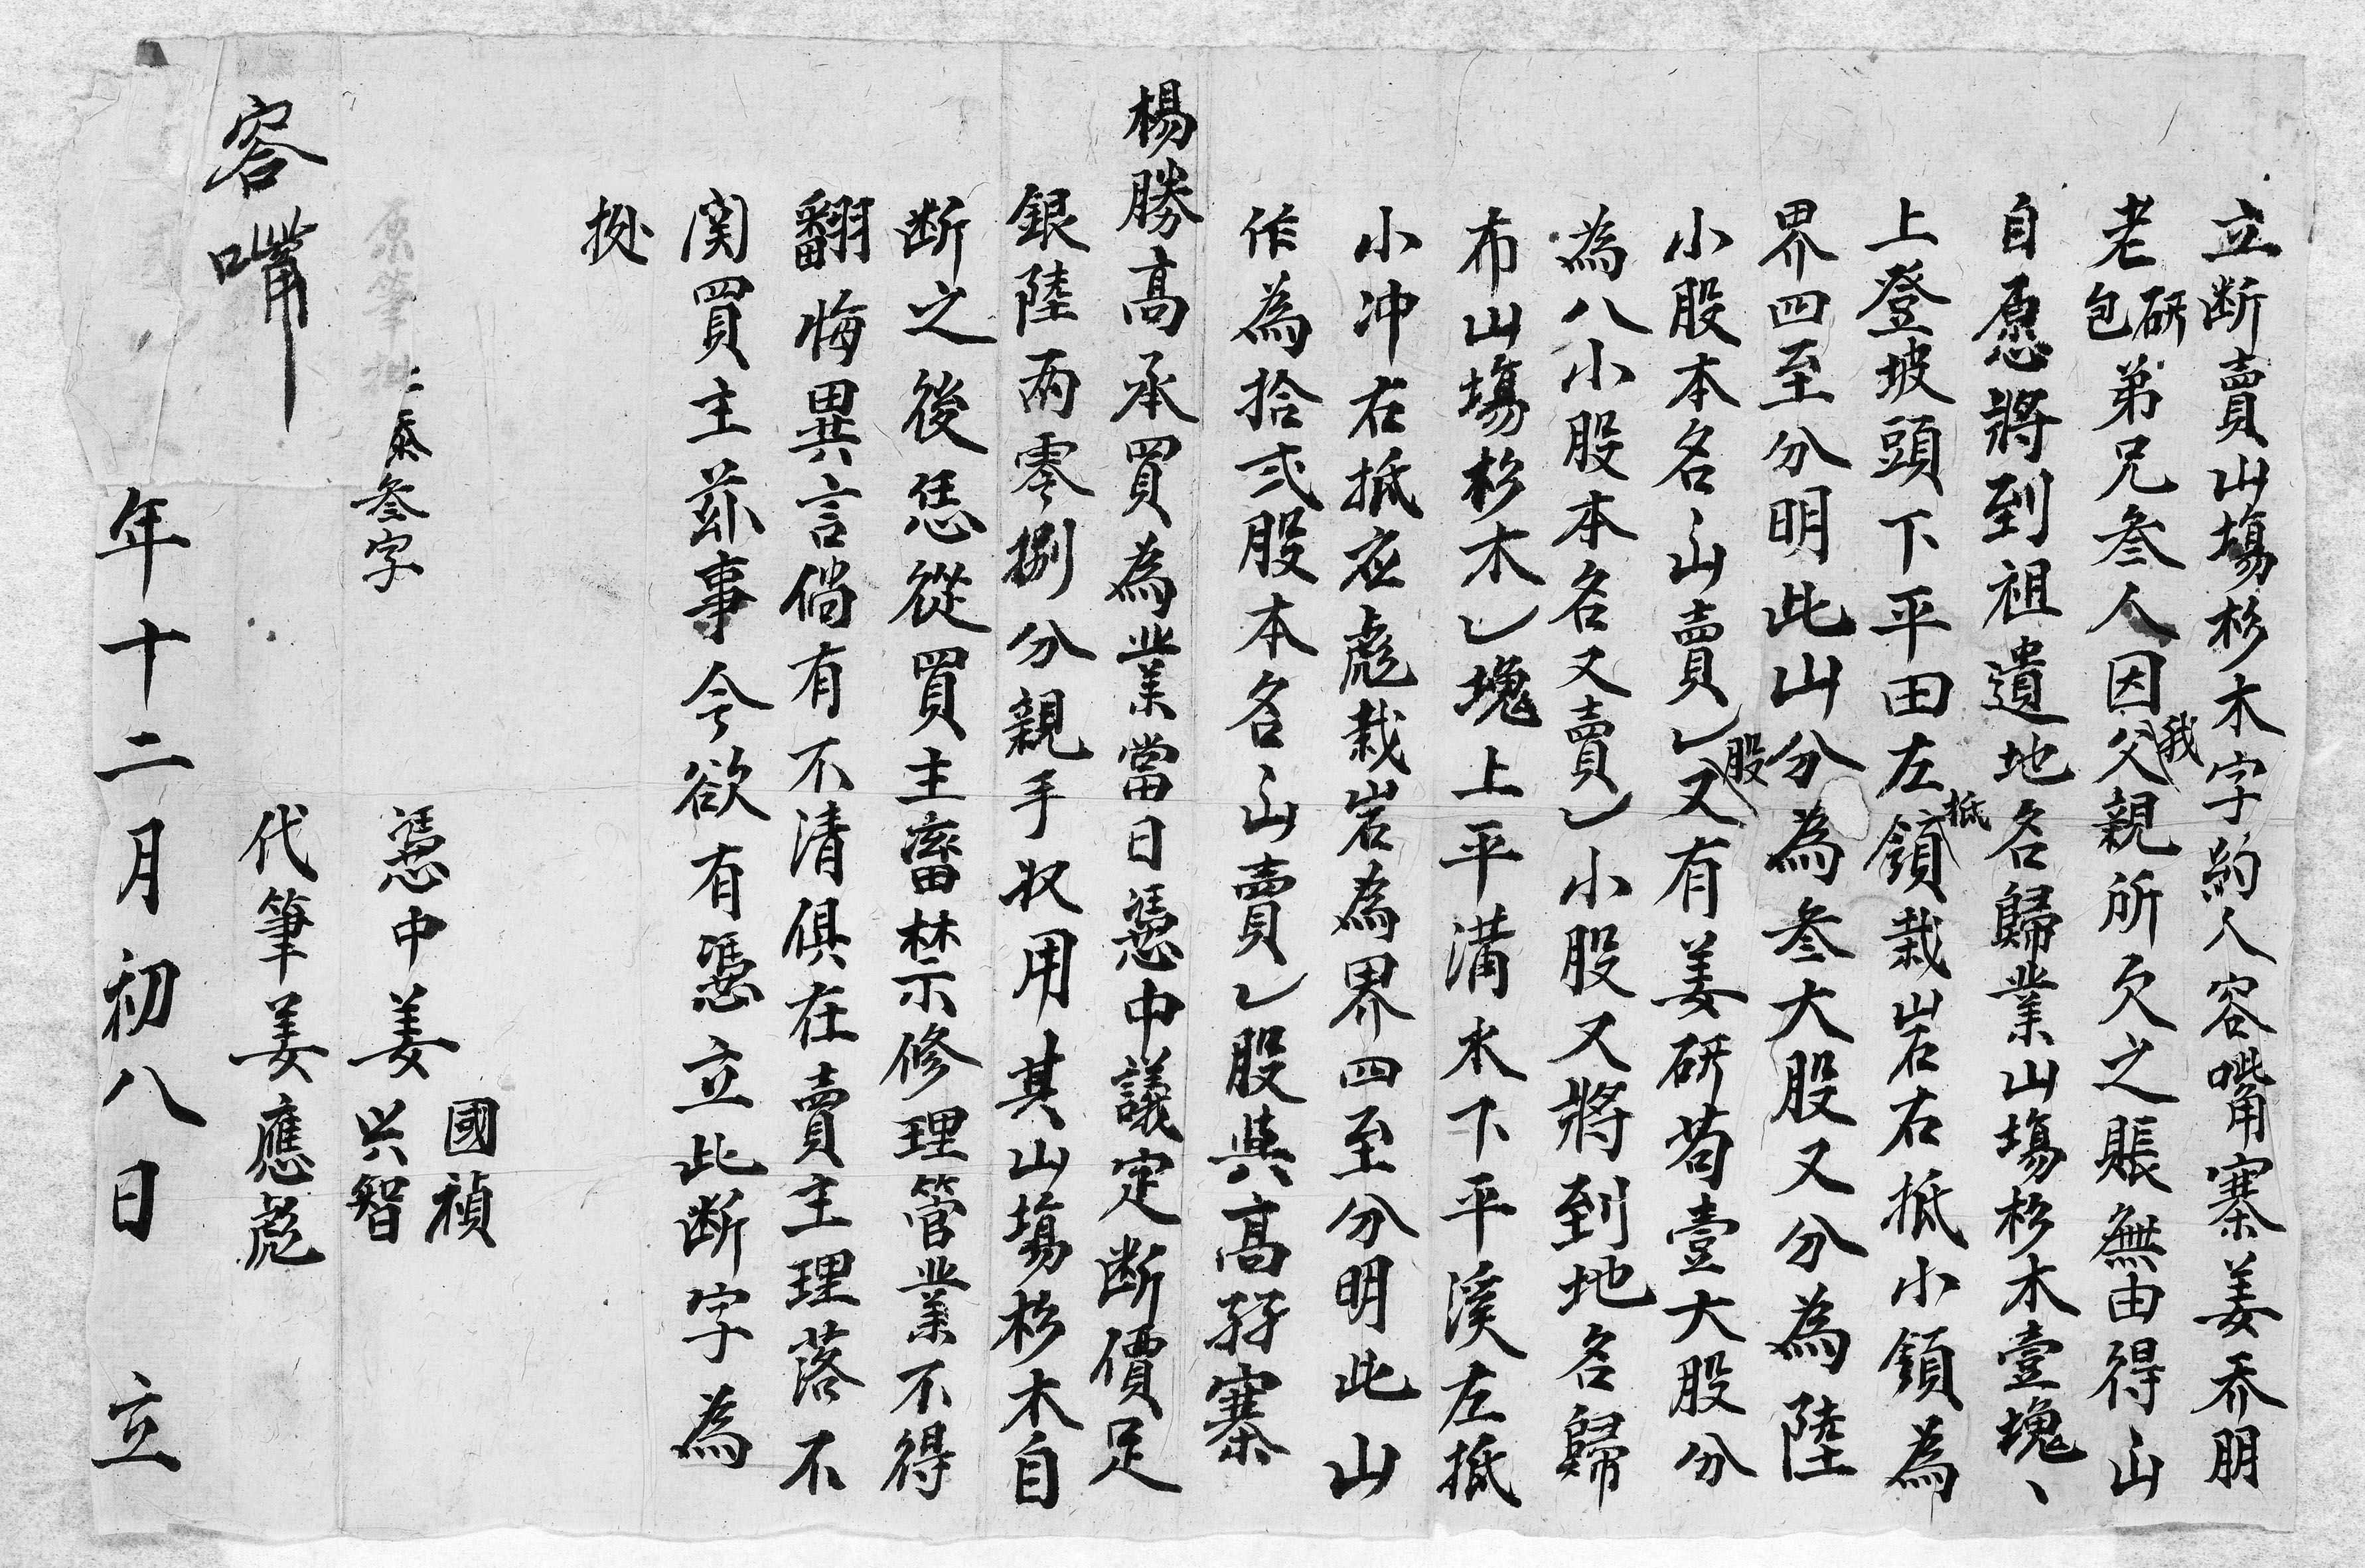 立断賣山塲杉木字約人容嘴寨姜乔朋
老研包弟兄叁人因我父親所欠之賬無由得出
自愿將到祖遺地名歸業山塲杉木壹塊、
上登坡頭下平田左抵嶺栽岩右抵小嶺為
界四至分明此山分為叁大股又分為陸
小股本名出賣乚股又有姜研苟壹大股分
為八小股本名又賣乚小股又將到地名歸
布山塲杉木乚塊上平溝水下平溪左抵
小冲右抵应彪栽岩為界四至分明此山
作為拾弍股本名出賣乚股與髙孖寨
楊勝髙承買為業當日憑中議定断價足
銀陸兩零捌分親手収用其山塲杉木自
断之後恁從買主畜禁修理管業不得
翻悔異言倘有不清俱在賣主理落不
関買主茲事今欲有憑立此断字為
㨿
憑中姜國禎
兴智
原筆批
添叁字
代筆姜應彪
容嘴
年十二月初八日立